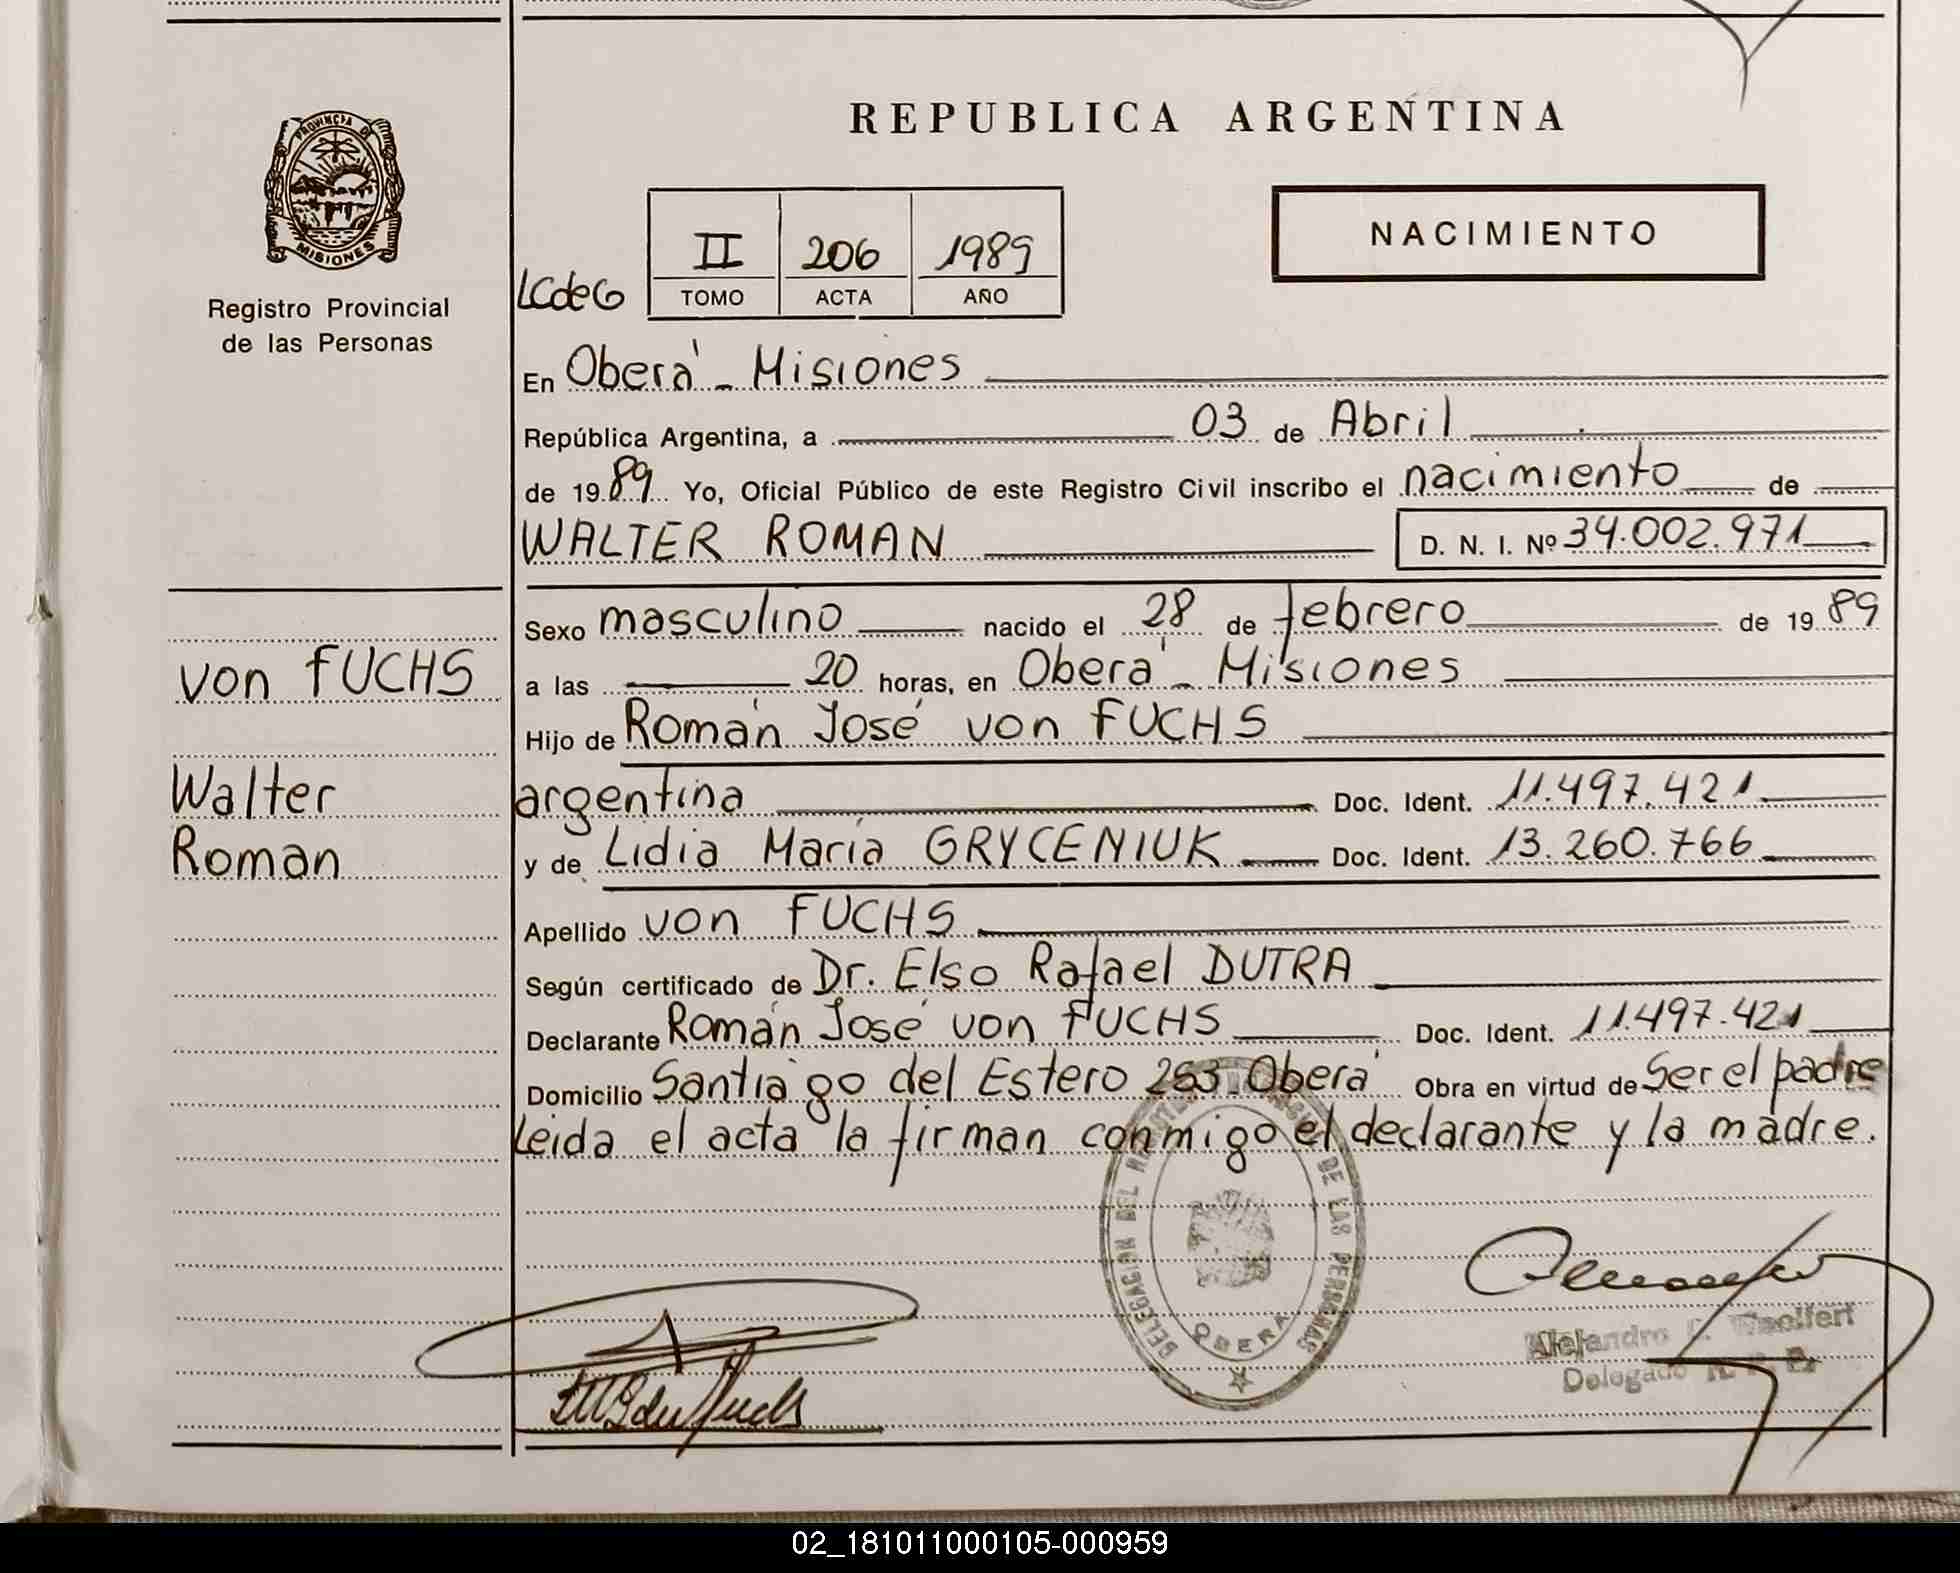 REPUBLICA ARGENTINA
PROVINCIA DE
MISIONES
Registro Provincial
de las Personas
NACIMIENTO
LCdeG
II 206 1989
TOMO ACTA AÑO
En Oberá - Misiones
República Argentina, a 03 de Abril
de 1989 Yo, Oficial Público de este Registro Civil inscribo el nacimiento de
WALTER ROMAN D. N. I. Nº 34.002.971
Sexo masculino nacido el 28 de febrero de 1989
von FUCHS
a las 20 horas, en Oberá - Misiones
Hijo de Román José von FUCHS
Walter
Roman
argentina Doc. Ident. 11.497.421
y de Lidia María GRYCENIUK Doc. Ident. 13.260.766
Apellido von FUCHS
Según certificado de Dr. Elso Rafael DUTRA
Declarante Román José von FUCHS Doc. Ident. 11.497.421
Domicilio Santiago del Estero 253 Oberá Obra en virtud de Ser el padre
Leida el acta la firman conmigo el declarante y la madre.
DELEGACION DEL REGISTRO DE LAS PERSONAS
OBERA
Alejandro
Delegado R. P. P.
02_181011000105-000959